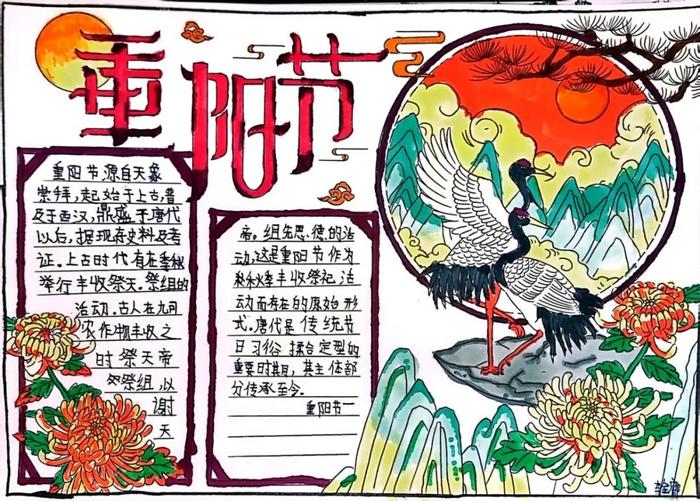 重阳节
重阳节源自天象
崇拜,起始于上古,普
及于西汉,鼎盛于唐代
以后,据现存史料及考
证。上古时代有在季秋
举行丰收祭天。祭组的
活动,古人在九月
农作物丰收之
时祭天帝
祭组,以
谢
天
帝。组先恩德的活
动,这是重阳节作为
秋季丰收祭祀活
动而存在的原始形
式。唐代是传统节
日习俗揉合定型的
重要时期,其主体部
分传承至今。
重阳节